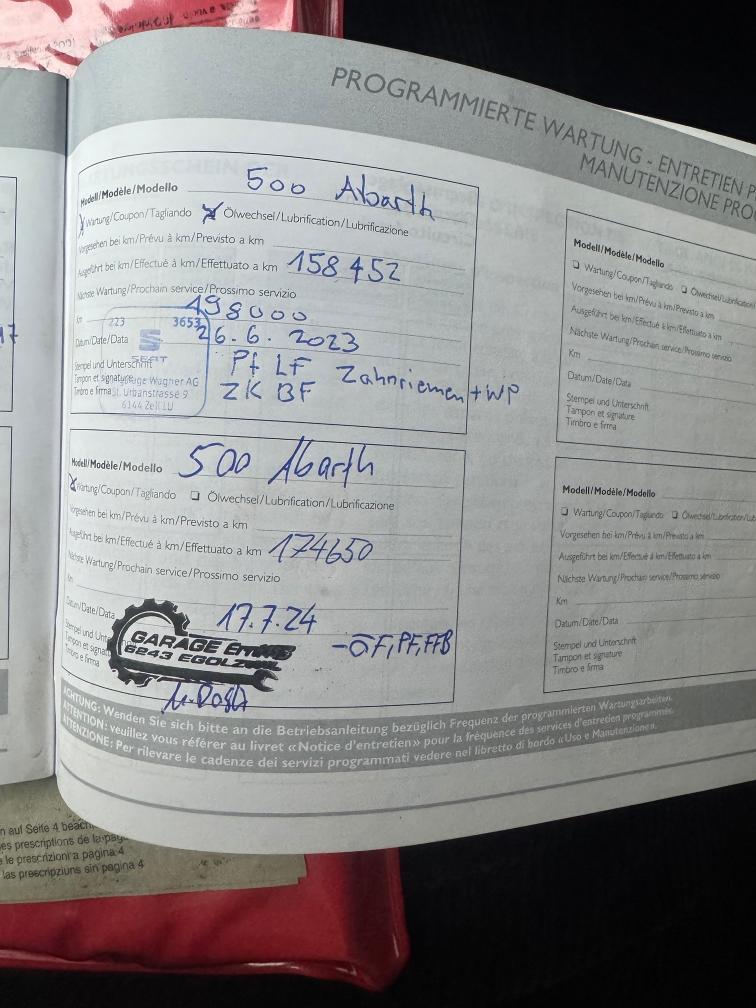 PROGRAMMIERTE WARTUNG - ENTRETIEN P
MANUTENZIONE PRO
Modell/Modèle/Modello 500 Abarth
☒ Wartung/Coupon/Tagliando ☒ Ölwechsel/Lubrification/Lubrificazione
Vorgesehen bei km/Prévu à km/Previsto a km
Ausgeführt bei km/Effectué à km/Effettuato a km 158452
Nächste Wartung/Prochain service/Prossimo servizio
Km 198000
223 3653
Datum/Date/Data 26.6.2023
SEAT
Stempel und Unterschrift
Tampon et signature
Timbro e firma
Garage Wagner AG
St. Urbanstrasse 9
6144 Zell LU
Pf LF Zahnriemen + WP
ZK BF
Modell/Modèle/Modello 500 Abarth
☒ Wartung/Coupon/Tagliando ☐ Ölwechsel/Lubrification/Lubrificazione
Vorgesehen bei km/Prévu à km/Previsto a km
Ausgeführt bei km/Effectué à km/Effettuato a km 174650
Nächste Wartung/Prochain service/Prossimo servizio
Km
Datum/Date/Data 17.7.24
Stempel und Unt
Tampon et signature
Timbro e firma
GARAGE
6243 EGOLZ
-ÖF, PF, FFB
Modell/Modèle/Modello
☐ Wartung/Coupon/Tagliando ☐ Ölwechsel/Lubrification
Vorgesehen bei km/Prévu à km/Previsto a km
Ausgeführt bei km/Effectué à km/Effettuato a km
Nächste Wartung/Prochain service/Prossimo servizio
Km
Datum/Date/Data
Stempel und Unterschrift
Tampon et signature
Timbro e firma
Modell/Modèle/Modello
☐ Wartung/Coupon/Tagliando ☐ Ölwechsel/Lubrification/Lub
Vorgesehen bei km/Prévu à km/Previsto a km
Ausgeführt bei km/Effectué à km/Effettuato a km
Nächste Wartung/Prochain service/Prossimo servizio
Km
Datum/Date/Data
Stempel und Unterschrift
Tampon et signature
Timbro e firma
ACHTUNG: Wenden Sie sich bitte an die Betriebsanleitung bezüglich Frequenz der programmierten Wartungsarbeiten.
ATTENTION: veuillez vous référer au livret «Notice d'entretien» pour la fréquence des services d'entretien programmés.
ATTENZIONE: Per rilevare le cadenze dei servizi programmati vedere nel libretto di bordo «Uso e Manutenzione».
n auf Seite 4 beach
es prescriptions de la pag
e le prescrizioni a pagina 4
las prescripziuns sin pagina 4